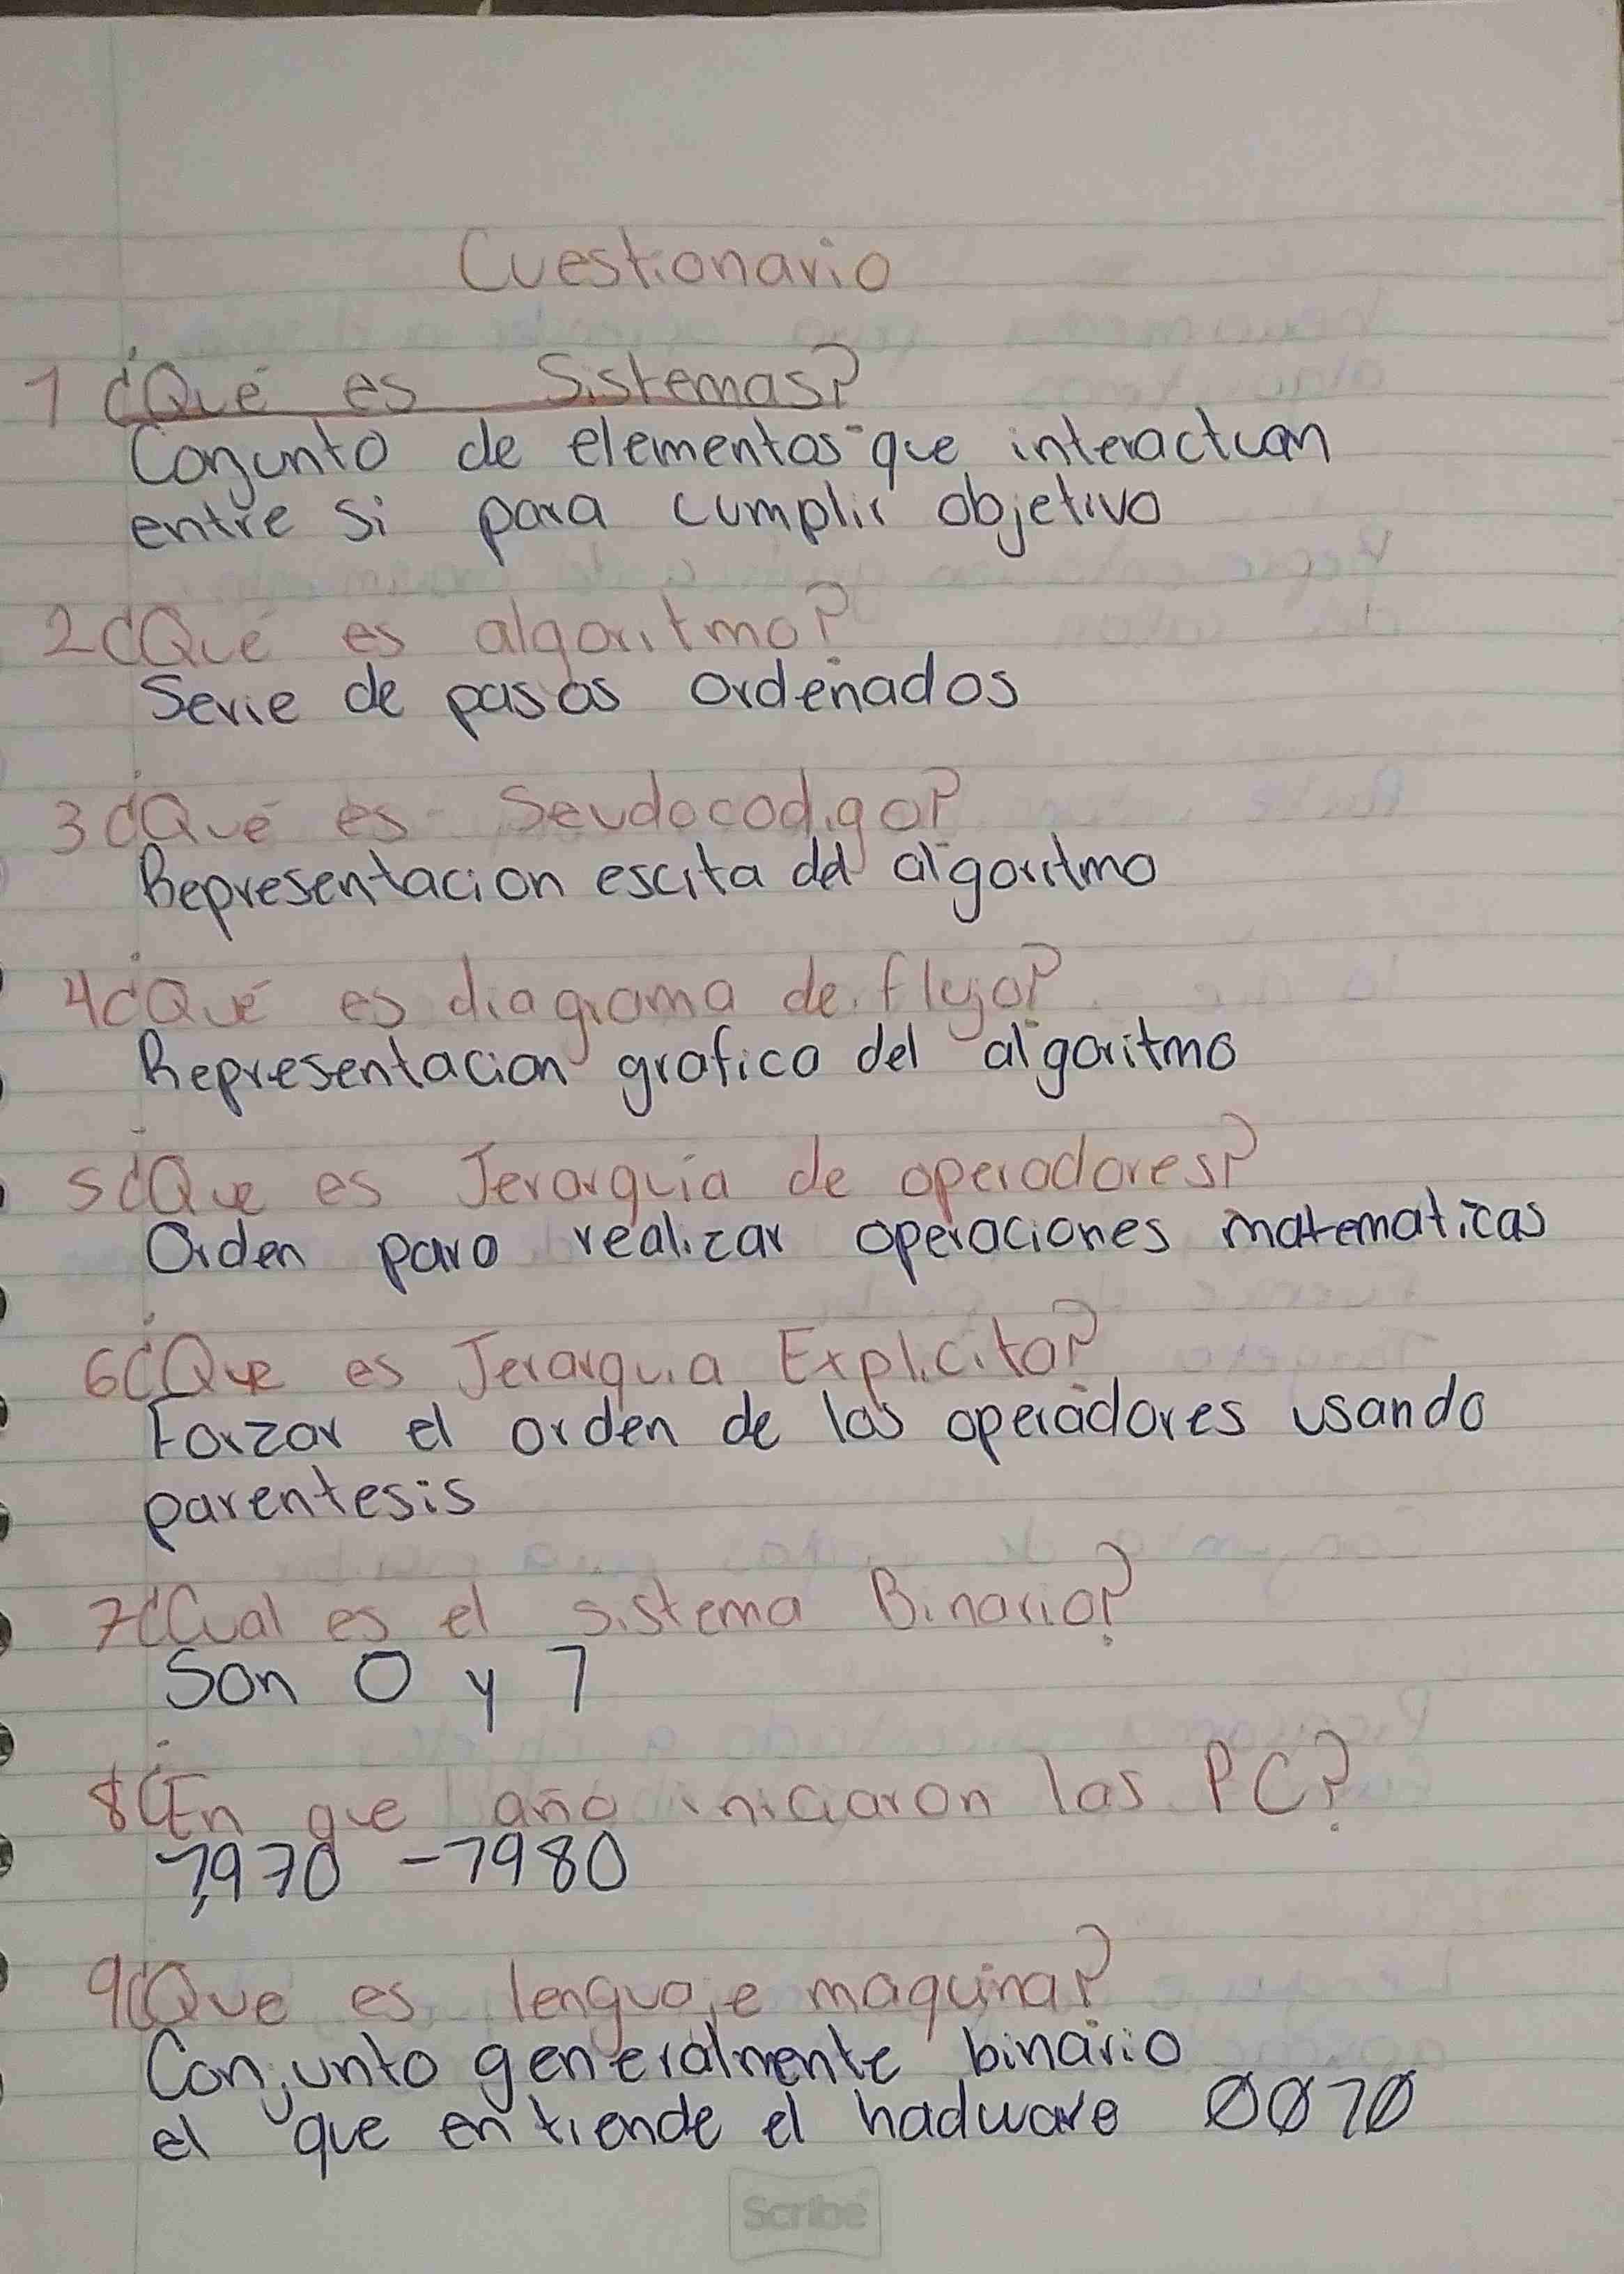 Cuestionario
1 ¿Qué es Sistemas?
Conjunto de elementos que interactuan
entre si para cumplir objetivo
2 ¿Qué es algoritmo?
Serie de pasos ordenados
3 ¿Qué es Seudocodigo?
Representacion escita del algoritmo
4 ¿Qué es diagrama de flujo?
Representacion grafica del algoritmo
5 ¿Que es Jerarquia de operadores?
Orden para realizar operaciones matematicas
6 ¿Que es Jerarquia Explicita?
Forzar el orden de los operadores usando
parentesis
7 ¿Cual es el sistema Binario?
Son 0 y 1
8 ¿En que año iniciaron las PC?
1,970 - 1980
9 ¿Que es lenguaje maquina?
Conjunto generalmente binario
el que entiende el hadware 0010
Scribe